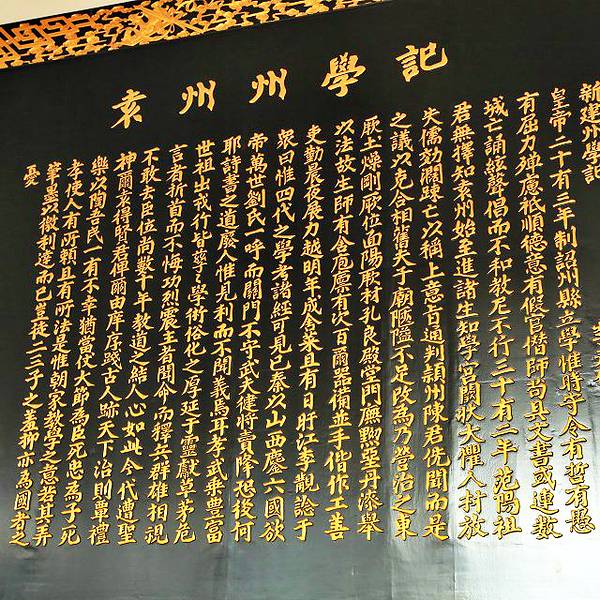 袁州州學記
皇帝二十有三年制詔州縣立學惟時守令有哲有愚
有屈力殫慮祗順德意有假官僭師苟具文書或連數
城亡誦絃聲倡而不和教尼不行三十有二年范陽祖
君無擇知袁州始至進諸生知學宮闕狀大懼人材放
失儒効濶踈亡以稱上意旨通判潁州陳君侁聞而是
之議以克合相舊夫子廟陿隘不足改為乃營治之東
厥土燥剛厥位面陽厥材孔良殿堂門廡黝堊丹漆舉
以法故生師有舍庖廩有次百爾器備並手偕作工善
吏勤晨夜展力越明年成舍菜且有日盱江李覯諗于
眾曰惟四代之學考諸經可見已秦以山西鏖六國欲
帝萬世劉氏一呼而關門不守武夫健將賣降恐後何
耶詩書之道廢人惟見利而不聞義焉耳孝武乘豐富
世祖出戎行皆孳孳學術俗化之厚延于靈獻草茅危
言者折首而不悔功烈震主者聞命而釋兵群雄相視
不敢去臣位尚數十年教道之結人心如此今代遭聖
神爾袁得賢君俾爾由庠序踐古人跡天下治則禪禮
樂以陶吾民一有不幸猶當仗大節為臣死忠為子死
孝使人有所賴且有所法是惟朝家教學之意若其弄
筆墨以徼利達而已豈徒二三子之羞抑亦為國者之
憂